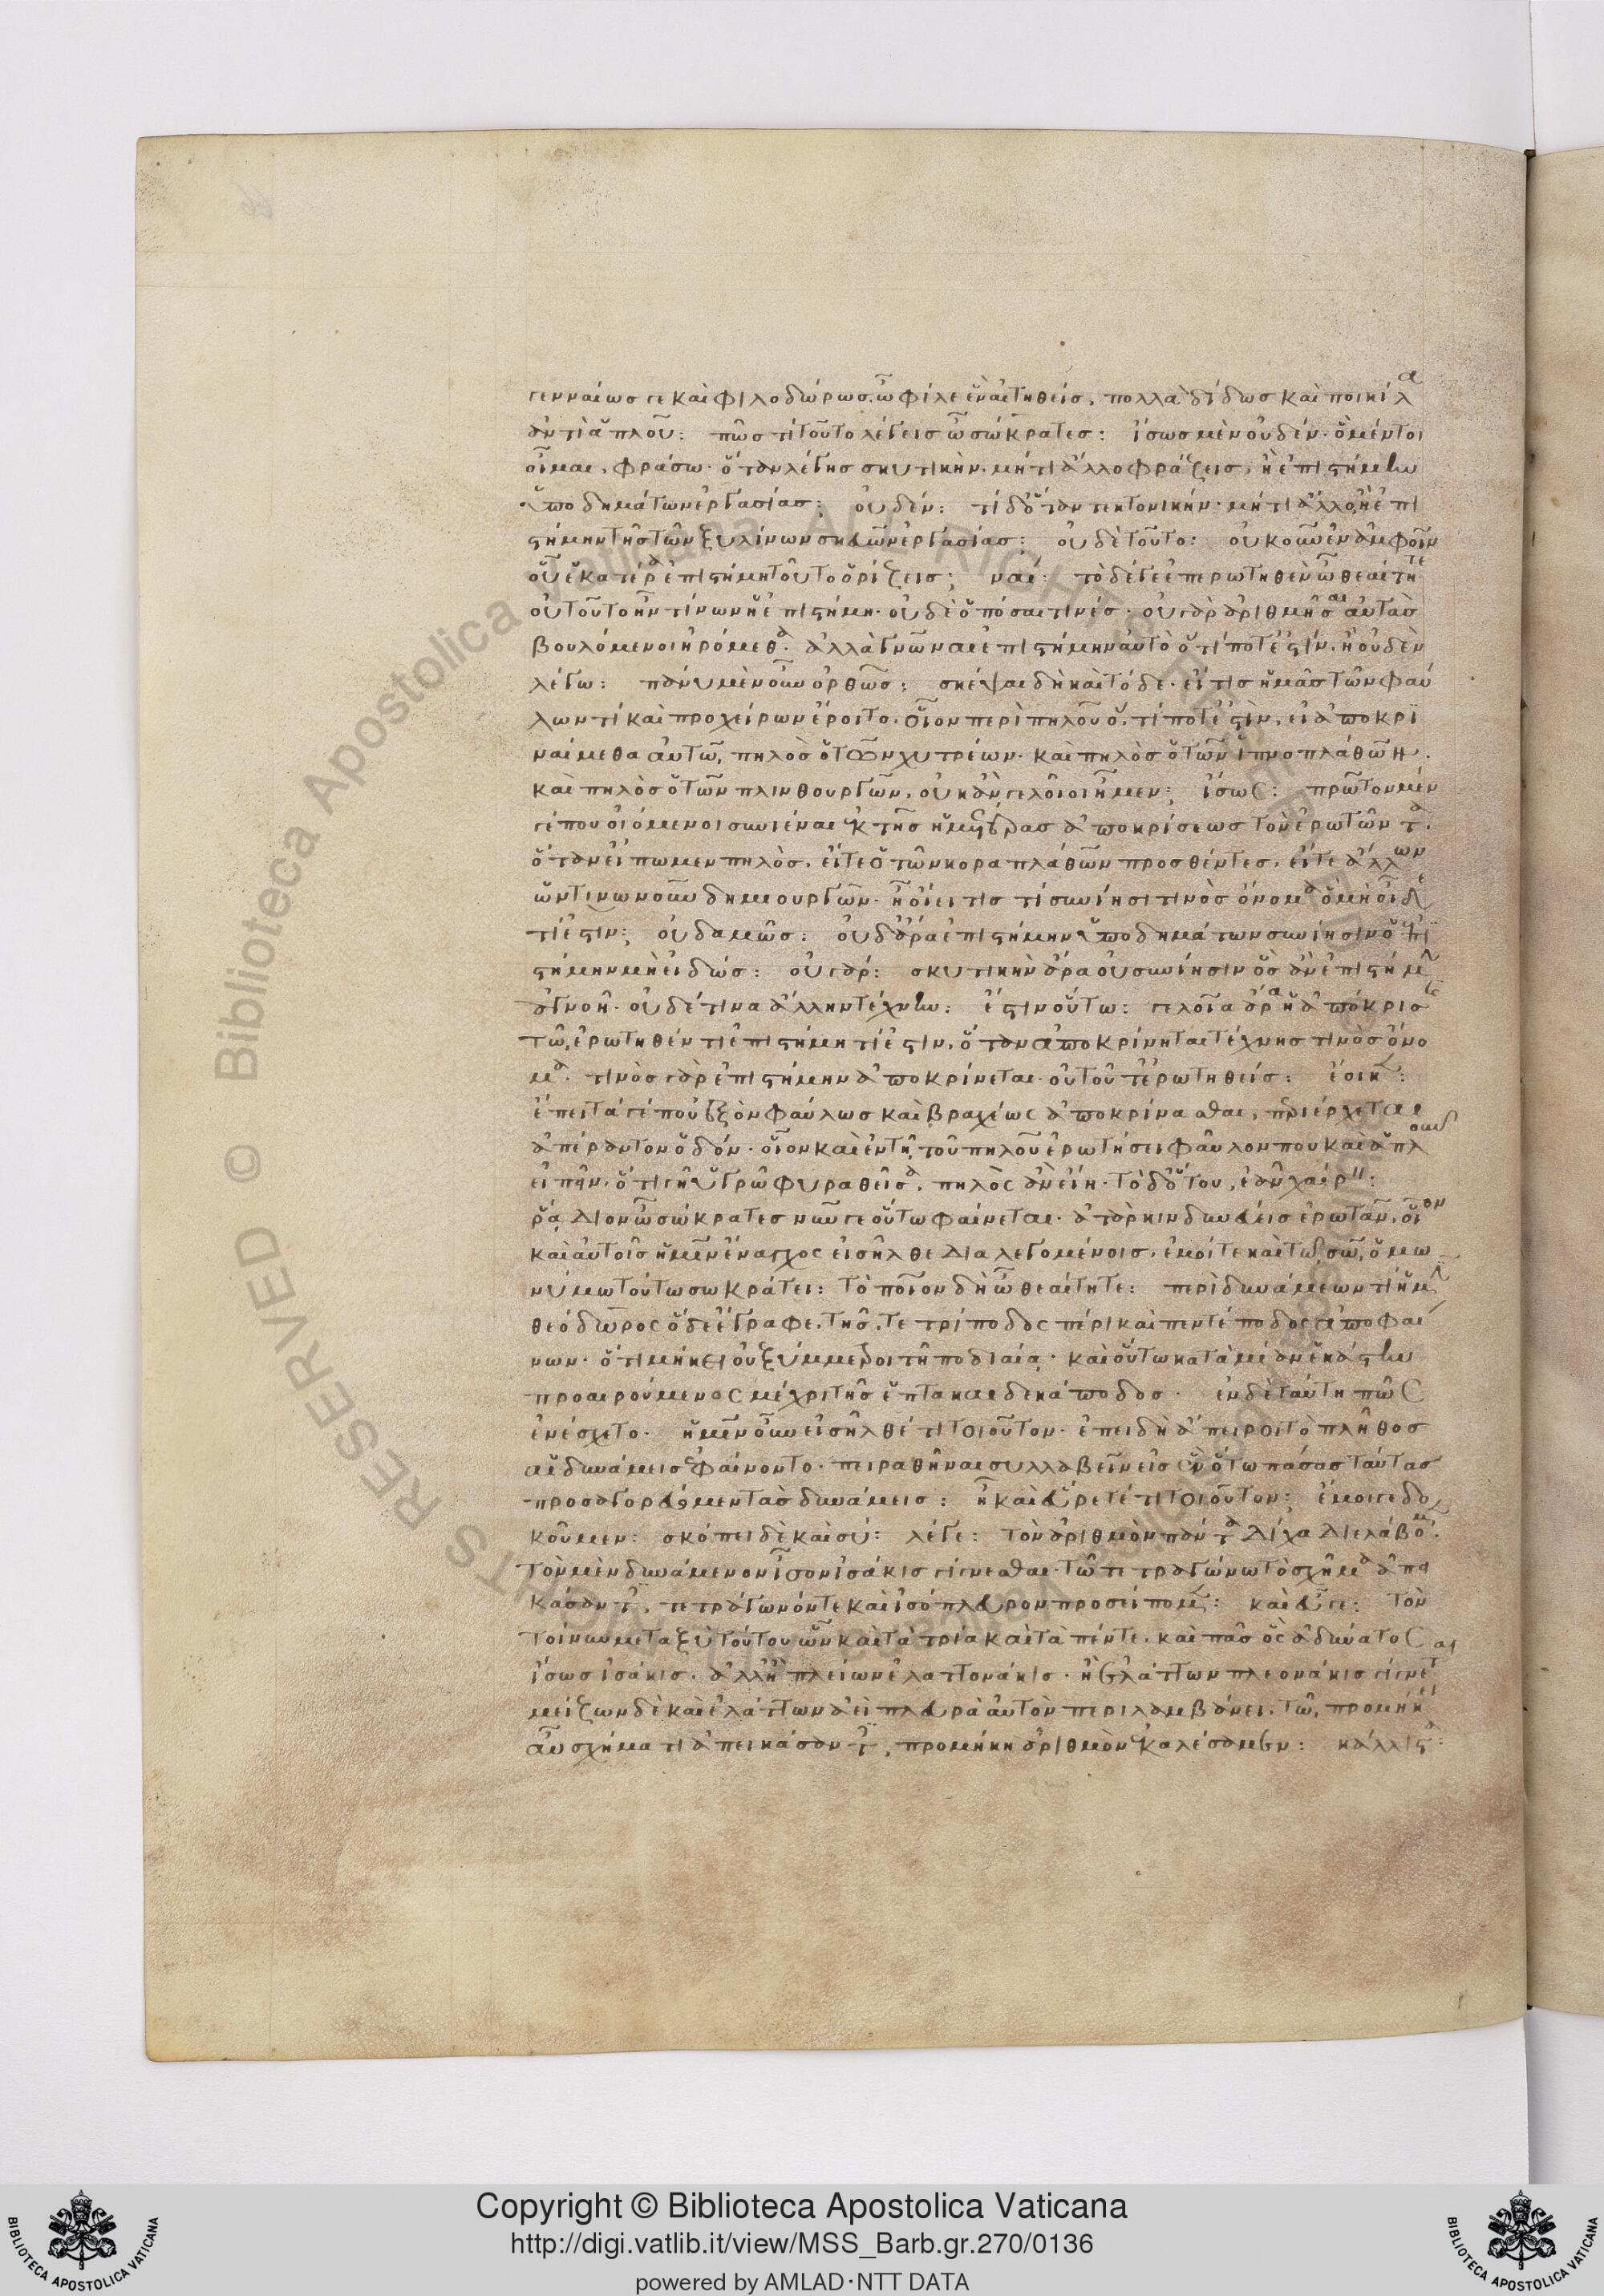 γενναίως γε καὶ φιλοδώρως. ὦ φίλε ἓν αἰτηθεὶς, πολλὰ δίδως καὶ ποικίλα
ἀντὶ ἁπλοῦ: πῶς τί τοῦτο λέγεις ὦ σώκρατες: ἴσως μὲν οὐδέν· ὃ μέντοι
οἶμαι, φράσω· ὅταν λέγῃς σκυτικὴν. μή τι ἄλλο φράζεις, ἢ ἐπιστήμην
ὑποδημάτων ἐργασίας; οὐδέν: τί δ' ὅταν τεκτονικήν· μή τι ἄλλο, ἢ ἐπι
στήμην τῆς τῶν ξυλίνων σκευῶν ἐργασίας; οὐδὲ τοῦτο: οὐκοῦν ἐν ἀμφοῖν
οὗ ἑκατέρα ἐπιστήμη τοῦτο ὁρίζεις; ναί: τὸ δέ γε ἐπερωτηθὲν ὦ θεαίτητε
οὐ τοῦτο ἦν τίνων ἡ ἐπιστήμη· οὐδὲ ὁπόσαι τινές· οὐ γὰρ ἀριθμῆσαι αὐτὰς
βουλόμενοι ἠρόμεθα· ἀλλὰ γνῶναι ἐπιστήμην αὐτὸ ὅ τί ποτ' ἐστίν. ἢ οὐδὲν
λέγω: πάνυ μὲν οὖν ὀρθῶς; σκέψαι δὴ καὶ τόδε· εἴ τις ἡμᾶς τῶν φαύ
λων τί καὶ προχείρων ἔροιτο. οἷον περὶ πηλοῦ ὅ, τί ποτ' ἐστὶν, εἰ ἀποκρι
ναίμεθα αὐτῷ, πηλὸς ὁ τῶν χυτρέων· καὶ πηλὸς ὁ τῶν ἱπνοπλάθων·
καὶ πηλὸς ὁ τῶν πλινθουργῶν, οὐκ ἂν γελοῖοι ἦμεν; ἴσως: πρῶτον μέν
γέ που οἰόμενοι συνιέναι ἐκ τῆς ἡμετέρας ἀποκρίσεως τὸν ἐρωτῶντα.
ὅταν εἴπωμεν πηλὸς, εἴτε ὁ τῶν κοραπλάθων προσθέντες, εἴτε ἄλλων
ὧντινων οὖν δημιουργῶν· ἢ οἴει τις τὶ συνίησι τινὸς ὄνομα ὃ μὴ οἶδε
τί ἐστιν; οὐδαμῶς: οὐδ' ἄρα ἐπιστήμην ὑποδημάτων συνίησιν ὁ ἐπι
στήμην μὴ εἰδώς: οὐ γάρ: σκυτικὴν ἄρα οὐ συνίησιν ὃς ἂν ἐπιστήμην
ἀγνοῇ· οὐδέ τινα ἄλλην τέχνην: ἔστιν οὕτω: γελοῖα ἄρα ἡ ἀπόκρισις
τῷ ἐρωτηθέντι ἐπιστήμη τί ἐστιν, ὅταν ἀποκρίνηται τέχνης τινὸς ὄνο
μα· τινὸς γὰρ ἐπιστήμην ἀποκρίνεται· οὐ τοῦτ' ἐρωτηθείς: ἔοικεν:
ἔπειτά γέ που ἐξὸν φαύλως καὶ βραχέως ἀποκρίνασθαι, περιέρχεται
ἀπέραντον ὁδόν· οἷον καὶ ἐν τῇ τοῦ πηλοῦ ἐρωτήσει φαῦλον που καὶ ἁπλοῦν
εἰπεῖν· ὅτι γῆ ὑγρῷ φυραθεῖσα, πηλὸς ἂν εἴη· τὸ δ' ὅτου, ἐᾶν χαίρειν:
ῥᾴδιον ὦ σώκρατες νῦν γε οὕτω φαίνεται· ἀτὰρ κινδυνεύεις ἐρωτᾶν, οἷον
καὶ αὐτοῖς ἡμῖν ἔναγχος εἰσῆλθε διαλεγομένοις, ἐμοί τε καὶ τῷ σῷ, ὁμω
νύμω τούτω σωκράτει: τὸ ποῖον δὴ ὦ θεαίτητε: περὶ δυνάμεων τι ἡμῖν
θεόδωρος ὅδε ἔγραφε. τῆς τε τρίποδος πέρι καὶ πεντέποδος ἀποφαί
νων· ὅτι μήκει οὐ ξύμμετροι τῇ ποδιαίᾳ· καὶ οὕτω κατὰ μίαν ἑκάστην
προαιρούμενος μέχρι τῆς ἑπτακαιδεκάποδος· ἐν δὲ ταύτῃ πῶς
ἐνέσχετο· ἡμῖν οὖν εἰσῆλθέ τι τοιοῦτον· ἐπειδὴ ἄπειροι τὸ πλῆθος
αἱ δυνάμεις ἐφαίνοντο· πειραθῆναι συλλαβεῖν εἰς ἓν ὅτω πάσας ταύτας
προσαγορεύσομεν τὰς δυνάμεις: ἦ καὶ εὕρετέ τι τοιοῦτον: ἔμοιγε δο
κοῦμεν: σκόπει δὲ καὶ σύ: λέγε: τὸν ἀριθμὸν πάντα δίχα διελάβομεν.
τὸν μὲν δυνάμενον ἴσον ἰσάκις γίγνεσθαι· τῷ τετραγώνω τὸ σχῆμα ἀπει
κάσαντες, τετράγωνόν τε καὶ ἰσόπλευρον προσείπομεν: καὶ εὖ γε: τὸν
τοίνυν μεταξὺ τούτου ὧν καὶ τὰ τρία καὶ τὰ πέντε. καὶ πᾶς ὃς ἀδύνατος
ἴσως ἰσάκις. ἀλλ' ἢ πλείων ἐλαττονάκις· ἢ ἐλάττων πλεονάκις γίγνεται
μείζων δὲ καὶ ἐλάττων ἀεὶ πλευρὰ αὐτὸν περιλαμβάνει. τῷ προμήκει
αὖ σχήματι ἀπεικάσαντες, προμήκη ἀριθμὸν ἐκαλέσαμεν: κάλλιστα:
Copyright © Biblioteca Apostolica Vaticana
http://digi.vatlib.it/view/MSS_Barb.gr.270/0136
powered by AMLAD·NTT DATA